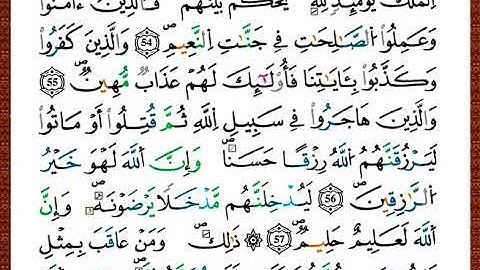 اِ۬لْمُلْكُ يَوْمَئِذٍ لِلهِ يَحْكُمُ بَيْنَهُمْ فَالَّذِينَ ءَامَنُواْ
وَعَمِلُواْ الصَّالِحَاتِ فِي جَنَّاتِ النَّعِيمِ 54 وَالَّذِينَ كَفَرُواْ
وَكَذَّبُواْ بِـَٔايَاتِنَا فَأُوْلَٰٓئِكَ لَهُمْ عَذَابٌ مُّهِينٌ 55
وَالَّذِينَ هَاجَرُواْ فِي سَبِيلِ اِللَّهِ ثُمَّ قُتِلُواْ أَوْ مَاتُواْ
لَيَرْزُقَنَّهُمُ اُللَّهُ رِزْقًا حَسَنًا وَإِنَّ اَللَّهَ لَهْوَ خَيْرُ
الرَّازِقِينَ 56 لَيُدْخِلَنَّهُم مَّدْخَلًا يَرْضَوْنَهُ وَإِنَّ
اَللَّهَ لَعَلِيمٌ حَلِيمٌ 57 ۞ ذَٰلِكَ وَمَنْ عَاقَبَ بِمِثْلِ